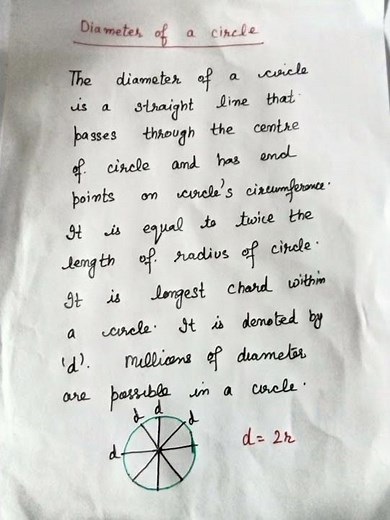 Diameter of a circle
The diameter of a circle
is a straight line that
passes through the centre
of circle and has end
points on circle's circumference.
It is equal to twice the
length of radius of circle.
It is longest chord within
a circle. It is denoted by
'd'. Millions of diameter
are possible in a circle.
d d d
d
d = 2r